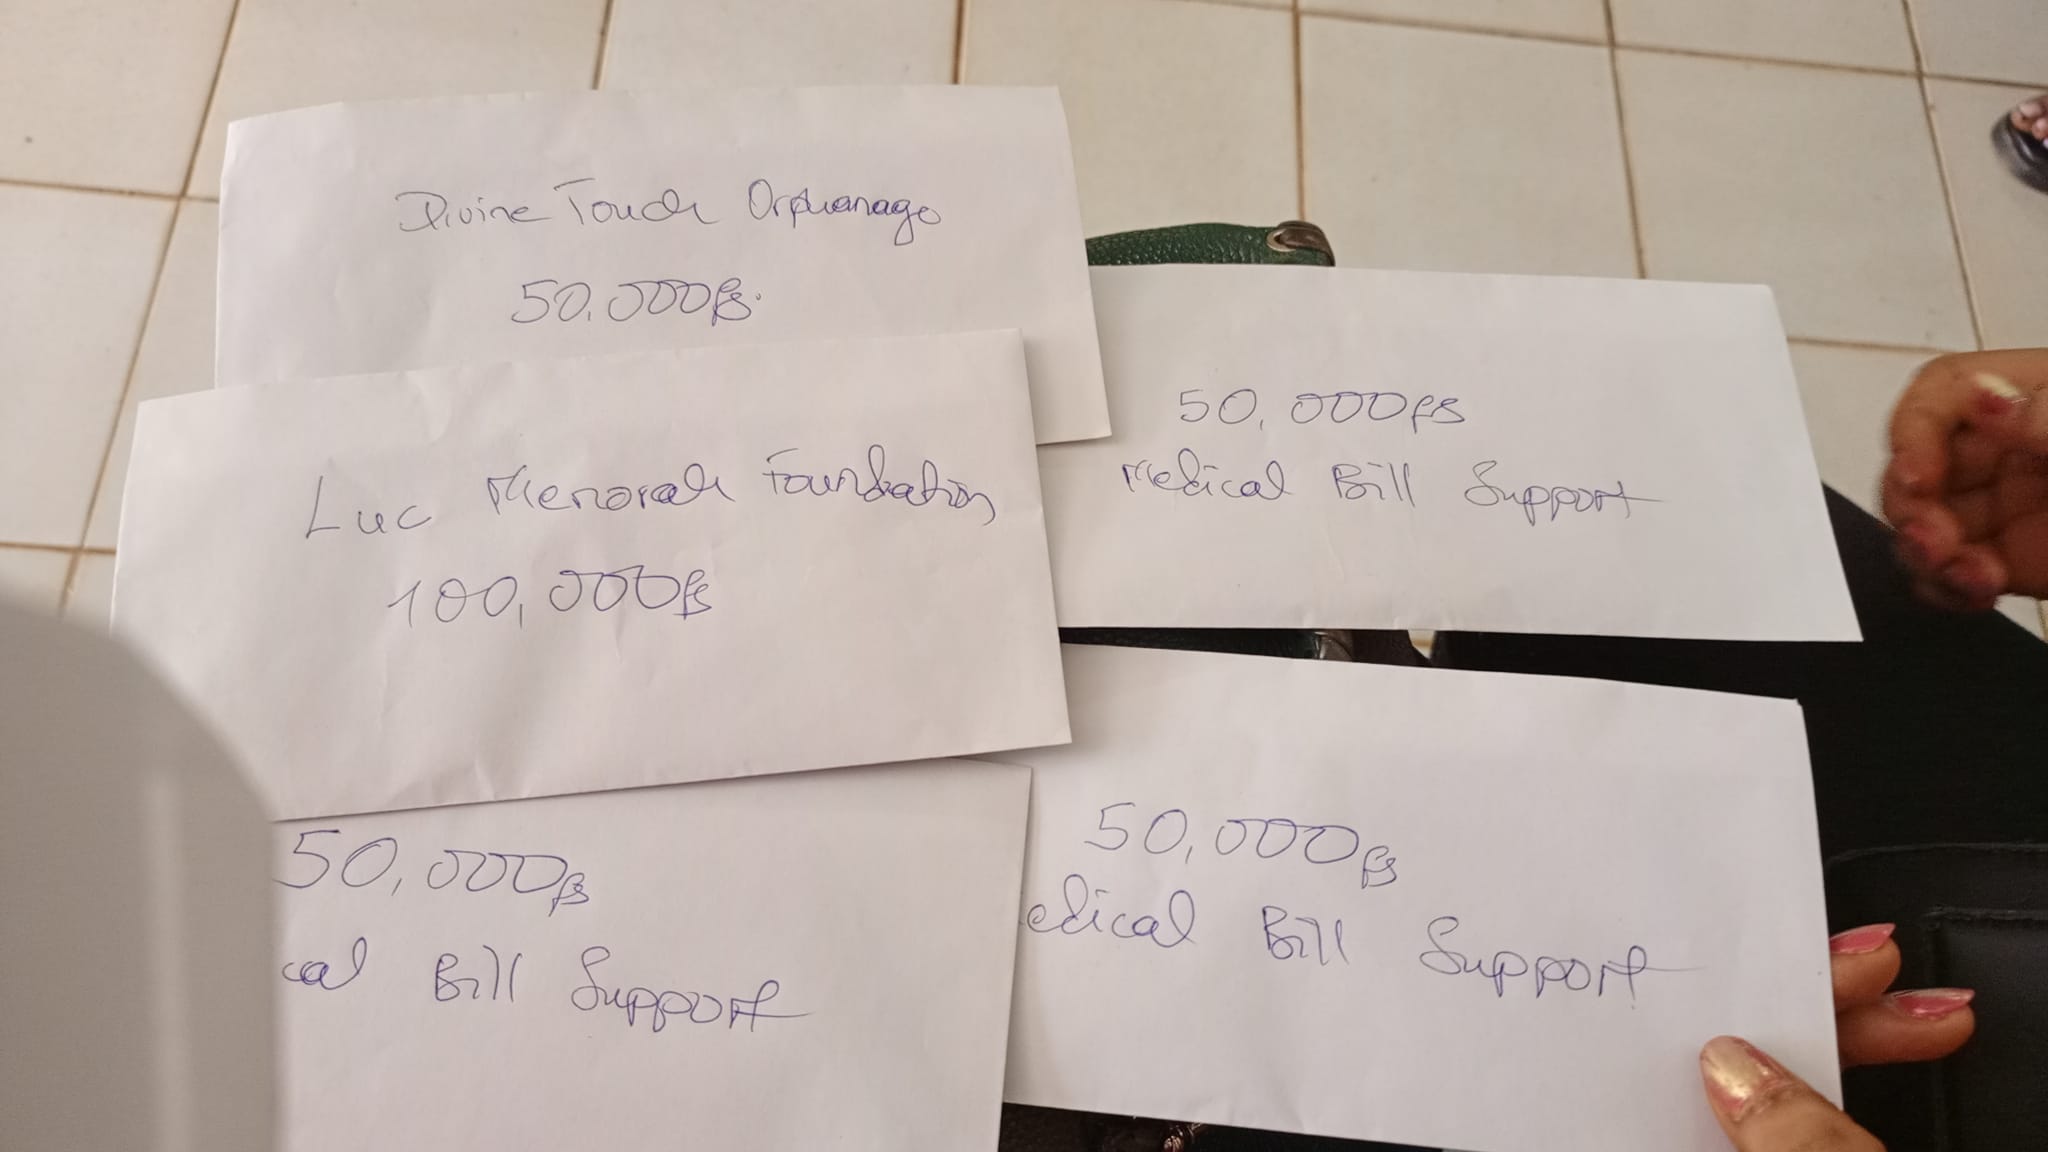 Divine Touch Orphanage
50,000fs.
Luc Menorah Foundation
100,000fs
50,000fs
Medical Bill Support
50,000fs
cal Bill Support
50,000fs
edical Bill Support